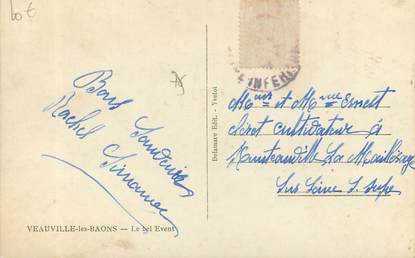 60 €
INFERIEURE
Bons Souvenirs
Rachel
Delamare Edit. - Yvetot
et Mme Ernest
cultivateur à
La Mailleraye
Sur Seine S. Infre
VEAUVILLE-les-BAONS — Le bel Event